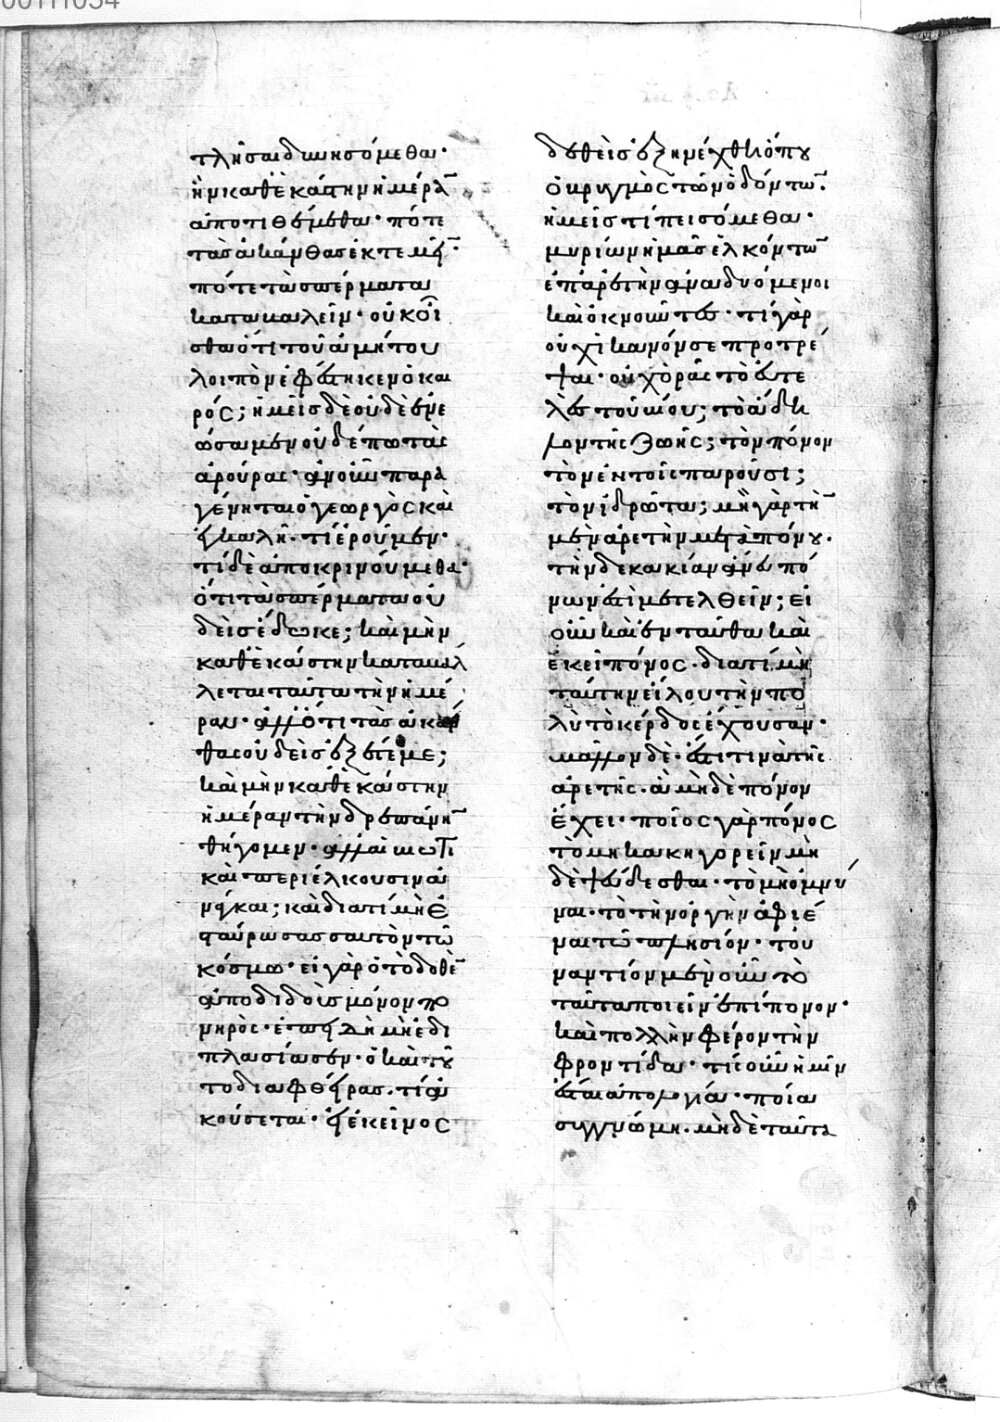 τλῆσαι δυνησόμεθα·
ἣν καθ' ἑκάστην ἡμέρα
ἀποτιθέμεθα· πότε
τὰς ἀκάνθας ἐκτεμεῖ·
πότε τὰ σπέρματα
καταβαλεῖν· οὐκ οἶ
σθα ὅτι τοῦ ἀμήτου
λοιπὸν ἐφέστηκεν ὁ και
ρός; ἡμεῖς δὲ οὐδὲ ἐνε
ώσαμεν οὐδέπω τὰς
ἀρούρας· ἂν οὖν παρα
γένηται ὁ γεωργὸς καὶ
ἐγκαλῇ· τί ἐροῦμεν·
τί δὲ ἀποκρινούμεθα·
ὅτι τὰ σπέρματα οὐ
δεὶς ἔδωκε; καὶ μὴν
καθ' ἑκάστην καταβάλ
λεται ταῦτα τὴν ἡμέ
ραν· ἀλλ' ὅτι τὰς ἀκάν
θας οὐδεὶς ἐξέτεμε;
καὶ μὴν καθ' ἑκάστην
ἡμέραν τὴν δρεπάνην
θήγομεν· ἀλλ' αἱ βιωτι
καὶ περιέλκουσιν ἀ
νάγκαι; καὶ διατί μὴ ἐ
σταύρωσας σαυτὸν τῷ
κόσμῳ· εἰ γὰρ ὁ τὸ δοθὲν
ἀποδιδοὺς μόνον πο
νηρὸς· ἐπειδὴ μὴ ἐδι
πλασίασεν· ὁ καὶ τοῦ
το διαφθείρας· τί ἀ
κούσεται· εἰ ἐκεῖνος
δεθεὶς ἐξηνέχθη ὅπου
ὁ βρυγμὸς τῶν ὀδόντων·
ἡμεῖς τί πεισόμεθα·
μυρίων ἡμᾶς ἑλκόντων
ἐπ' ἀρετὴν ἀναδυόμενοι
καὶ ὀκνοῦντες· τί γὰρ
οὐχ ἱκανόν σε προτρέ
ψαι· οὐχ ὁρᾷς τὸ εὐτε
λὲς τοῦ βίου; τὸ ἄδη
λον τῆς ζωῆς; τὸν πόνον
τὸν ἐν τοῖς παροῦσι;
τὸν ἱδρῶτα; μὴ γὰρ τὴν
μὲν ἀρετὴν μετὰ πόνου·
τὴν δὲ κακίαν ἄνευ πό
νων ἐστὶ μετελθεῖν; εἰ
οὖν καὶ ἐνταῦθα καὶ
ἐκεῖ πόνος· διατί μὴ
ταύτην εἵλου τὴν πο
λὺ τὸ κέρδος ἔχουσαν·
μᾶλλον δὲ· ἔστι τινὰ τῆς
ἀρετῆς· ἃ μηδὲ πόνον
ἔχει· ποῖος γὰρ πόνος
τὸ μὴ κακηγορεῖν μὴ
δὲ ψεύδεσθαι· τὸ μὴ ὀμνύ
ναι· τὸ τὴν ὀργὴν ἀφιέ
ναι τῷ πλησίον· τοὐ
ναντίον μὲν οὖν τὸ
ταῦτα ποιεῖν ἐπίπονον·
καὶ πολλὴν φέρον τὴν
φροντίδα· τίς οὖν ἡμῖν
ἔσται ἀπολογία· ποία
συγγνώμη· μηδὲ ταῦτα